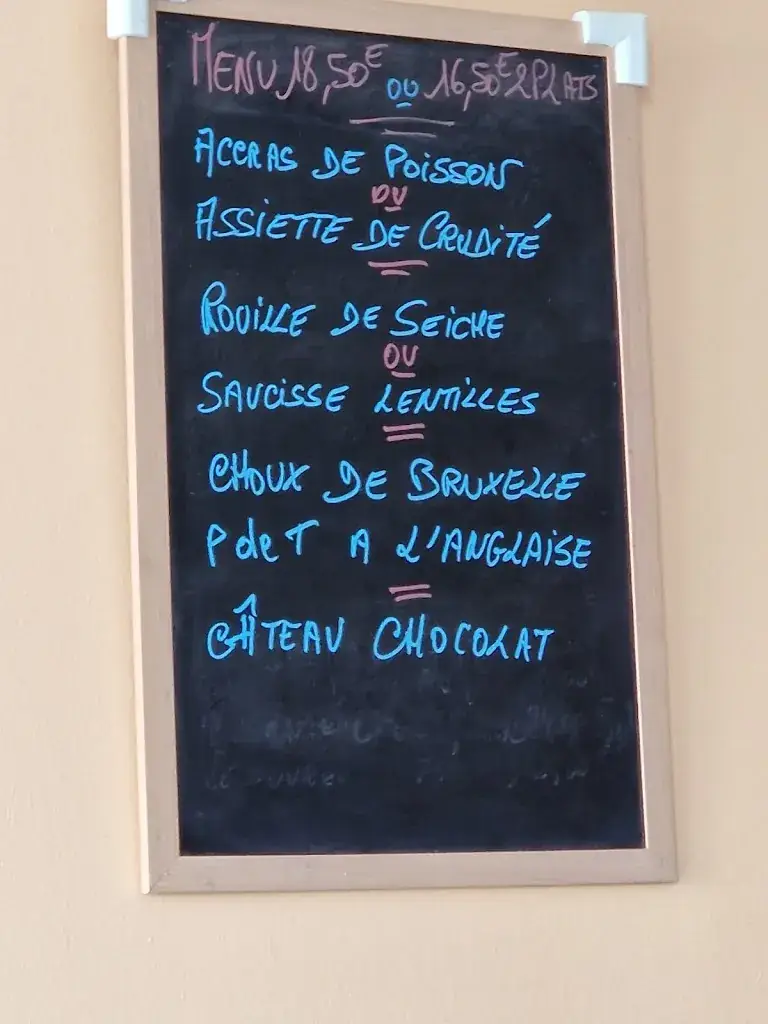 MENU 18,50€ OU 16,50€ 2 PLATS
ACCRAS DE POISSON
OU
ASSIETTE DE CRUDITÉ
ROUILLE DE SEICHE
OU
SAUCISSE LENTILLES
CHOUX DE BRUXELLE
P de T A L'ANGLAISE
GÂTEAU CHOCOLAT